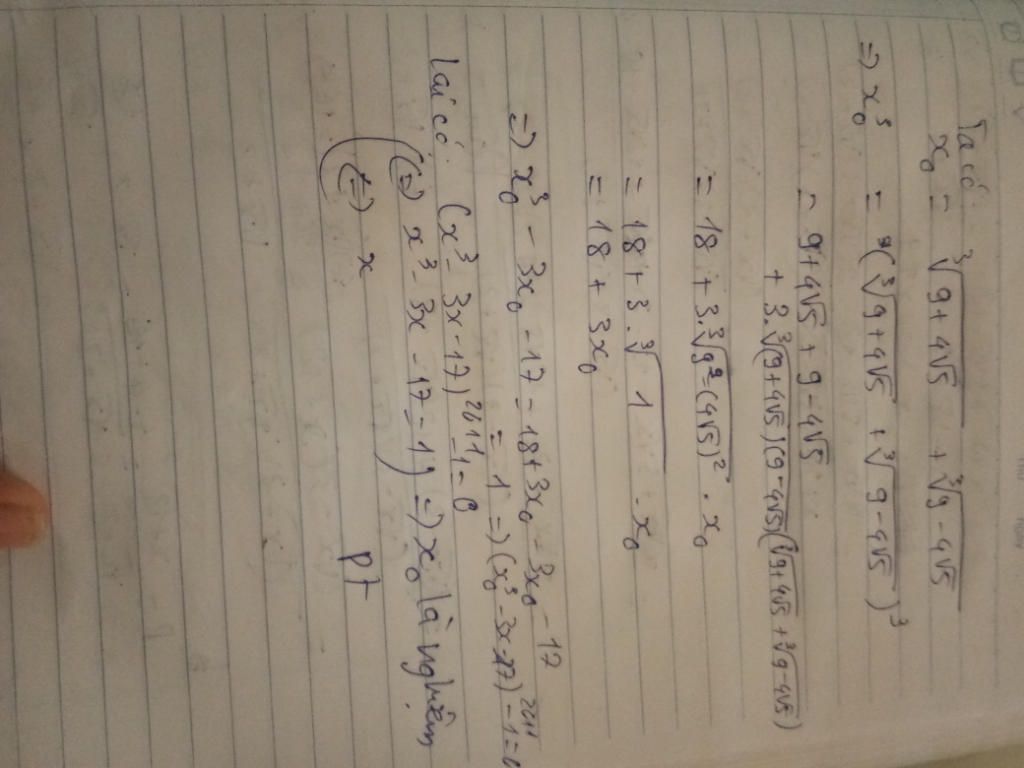 Ta có
x₀ = ∛(9+4√5) + ∛(9-4√5)
=> x₀³ = (∛(9+4√5) + ∛(9-4√5))³
= 9+4√5 + 9-4√5
+ 3.∛((9+4√5)(9-4√5)) (∛(9+4√5) + ∛(9-4√5))
= 18 + 3.∛(9²-(4√5)²) . x₀
= 18 + 3.∛1 . x₀
= 18 + 3x₀
=> x₀³ - 3x₀ - 17 = 18 + 3x₀ - 3x₀ - 17
= 1 => (x₀³ - 3x - 17)²⁰¹¹ - 1 = 0
Lại có (x³ - 3x - 17)²⁰¹¹ - 1 = 0
(=) x³ - 3x - 17 = 1) => x₀ là nghiệm
(=) x pt